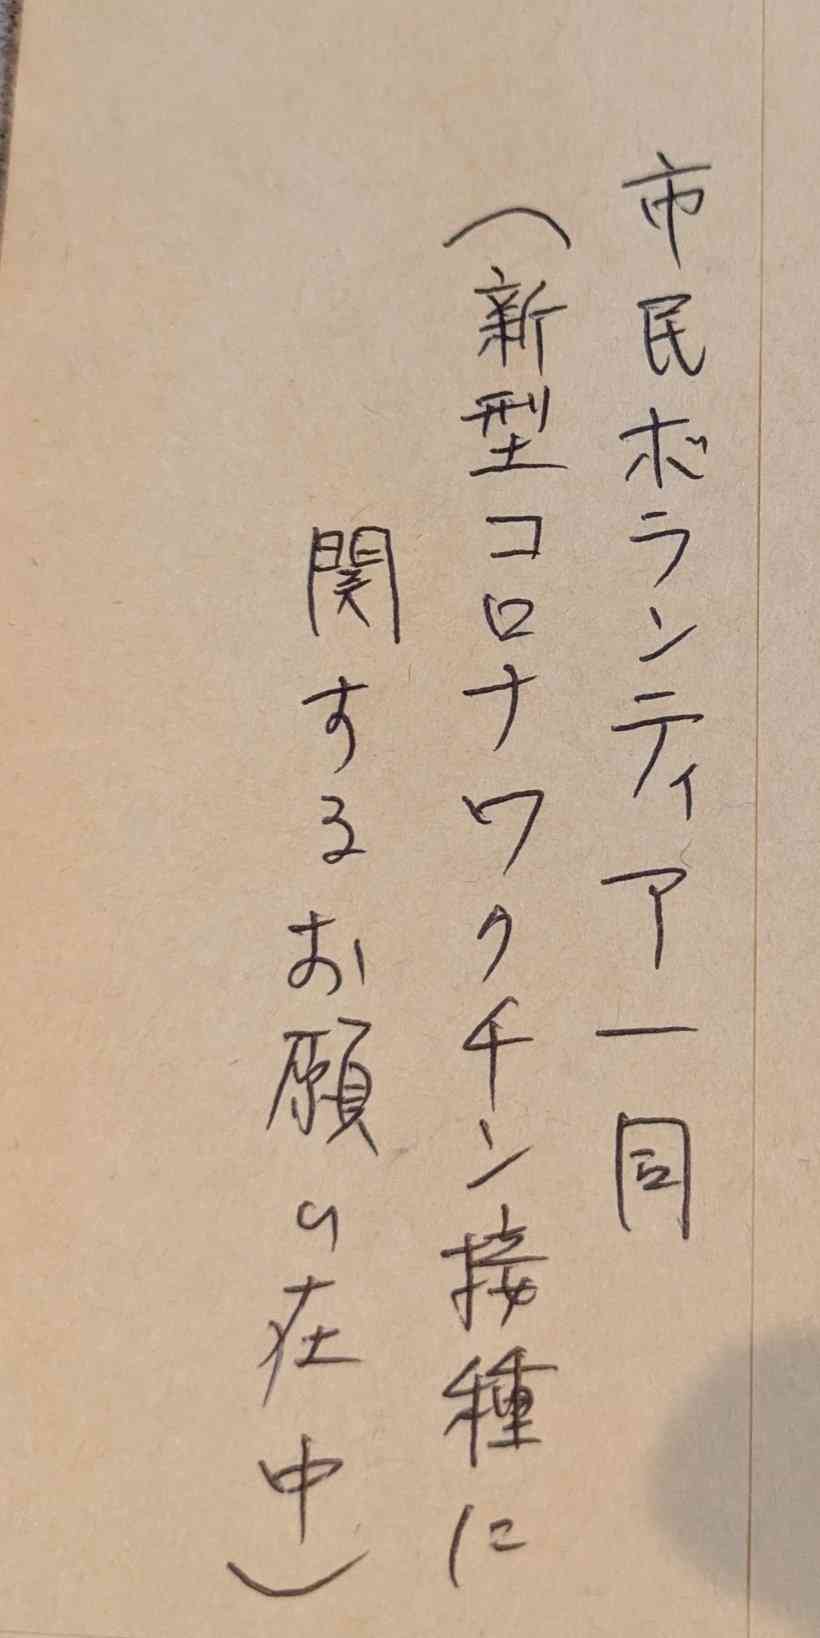 市民ボランティア一同
（新型コロナワクチン接種に
関するお願い在中）